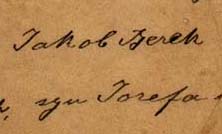 Jakob Berek
syn Josefa